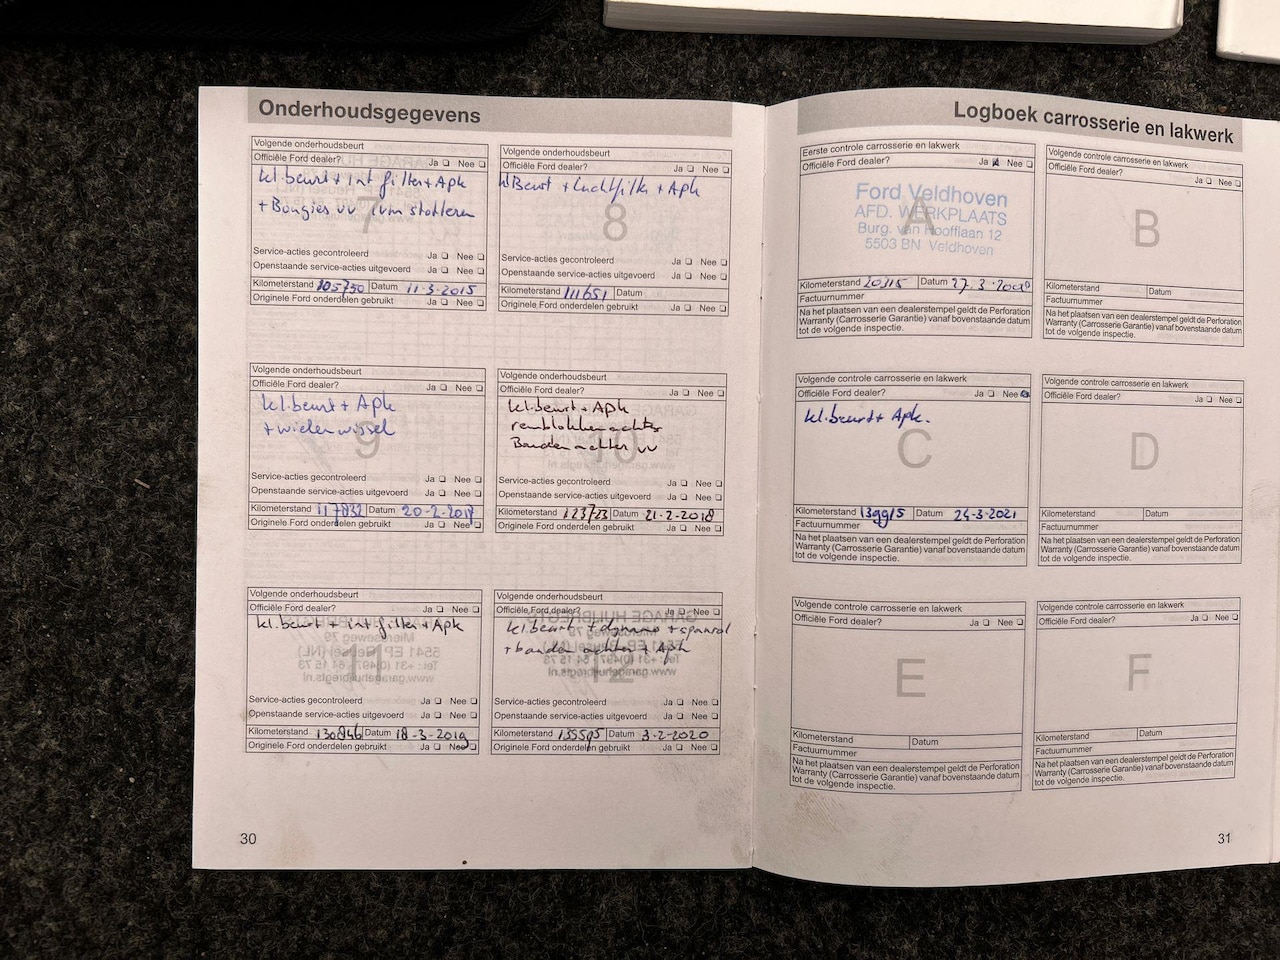 Onderhoudsgegevens
Volgende onderhoudsbeurt
Officiële Ford dealer? Ja Nee
kl.beurt + int filter + Apk
+ Bougies vv ivm stotteren
7
Service-acties gecontroleerd Ja Nee
Openstaande service-acties uitgevoerd Ja Nee
Kilometerstand 105750 Datum 11-3-2015
Originele Ford onderdelen gebruikt Ja Nee
Volgende onderhoudsbeurt
Officiële Ford dealer? Ja Nee
kl Beurt + Luchtfilter + Apk
8
Service-acties gecontroleerd Ja Nee
Openstaande service-acties uitgevoerd Ja Nee
Kilometerstand 111651 Datum
Originele Ford onderdelen gebruikt Ja Nee
Volgende onderhoudsbeurt
Officiële Ford dealer? Ja Nee
kl.beurt + Apk
+ wielen wissel
9
Service-acties gecontroleerd Ja Nee
Openstaande service-acties uitgevoerd Ja Nee
Kilometerstand 117832 Datum 20-2-2017
Originele Ford onderdelen gebruikt Ja Nee
Volgende onderhoudsbeurt
Officiële Ford dealer? Ja Nee
kl.beurt + Apk
remblokken achter
Banden achter vv
10
Service-acties gecontroleerd Ja Nee
Openstaande service-acties uitgevoerd Ja Nee
Kilometerstand 123723 Datum 21-2-2018
Originele Ford onderdelen gebruikt Ja Nee
Volgende onderhoudsbeurt
Officiële Ford dealer? Ja Nee
kl.beurt + int filter + Apk
11
Service-acties gecontroleerd Ja Nee
Openstaande service-acties uitgevoerd Ja Nee
Kilometerstand 130846 Datum 18-3-2019
Originele Ford onderdelen gebruikt Ja Nee
Volgende onderhoudsbeurt
Officiële Ford dealer? Ja Nee
kl.beurt + dynamo +
+ banden achter + Apk
12
Service-acties gecontroleerd Ja Nee
Openstaande service-acties uitgevoerd Ja Nee
Kilometerstand 135505 Datum 3-2-2020
Originele Ford onderdelen gebruikt Ja Nee
30
Logboek carrosserie en lakwerk
Eerste controle carrosserie en lakwerk
Officiële Ford dealer? Ja Nee
Ford Veldhoven
AFD. WERKPLAATS
Burg. van Hoofflaan 12
5503 BN Veldhoven
A
Kilometerstand 20315 Datum 27.3.
Factuurnummer
Na het plaatsen van een dealerstempel geldt de Perforation
Warranty (Carrosserie Garantie) vanaf bovenstaande datum
tot de volgende inspectie.
Volgende controle carrosserie en lakwerk
Officiële Ford dealer? Ja Nee
B
Kilometerstand Datum
Factuurnummer
Na het plaatsen van een dealerstempel geldt de Perforation
Warranty (Carrosserie Garantie) vanaf bovenstaande datum
tot de volgende inspectie.
Volgende controle carrosserie en lakwerk
Officiële Ford dealer? Ja Nee
kl.beurt + Apk.
C
Kilometerstand 139915 Datum 24-3-2021
Factuurnummer
Na het plaatsen van een dealerstempel geldt de Perforation
Warranty (Carrosserie Garantie) vanaf bovenstaande datum
tot de volgende inspectie.
Volgende controle carrosserie en lakwerk
Officiële Ford dealer? Ja Nee
D
Kilometerstand Datum
Factuurnummer
Na het plaatsen van een dealerstempel geldt de Perforation
Warranty (Carrosserie Garantie) vanaf bovenstaande datum
tot de volgende inspectie.
Volgende controle carrosserie en lakwerk
Officiële Ford dealer? Ja Nee
E
Kilometerstand Datum
Factuurnummer
Na het plaatsen van een dealerstempel geldt de Perforation
Warranty (Carrosserie Garantie) vanaf bovenstaande datum
tot de volgende inspectie.
Volgende controle carrosserie en lakwerk
Officiële Ford dealer? Ja Nee
F
Kilometerstand Datum
Factuurnummer
Na het plaatsen van een dealerstempel geldt de Perforation
Warranty (Carrosserie Garantie) vanaf bovenstaande datum
tot de volgende inspectie.
31